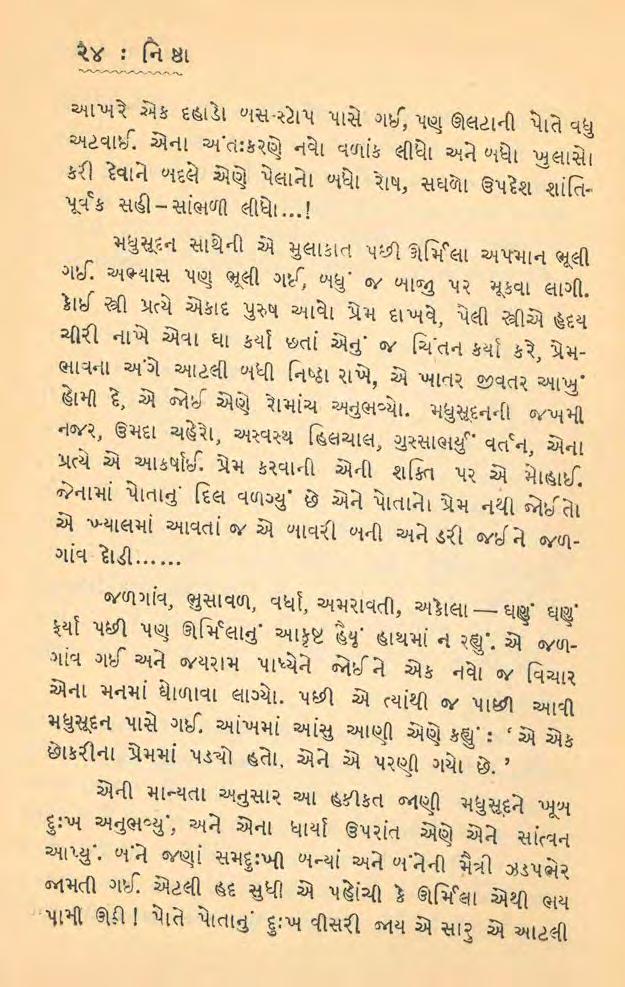 ૨૪ : નિષ્ઠા
આખરે એક દહાડો બસ-સ્ટોપ પાસે ગઈ, પણ ઊલટાની પોતે વધુ
અટવાઈ. એના અંતઃકરણે નવો વળાંક લીધો અને બધો ખુલાસો
કરી દેવાને બદલે એણે પેલાનો બધો રોષ, સઘળો ઉપદેશ શાંતિ-
પૂર્વક સહી – સાંભળી લીધો...!
મધુસૂદન સાથેની એ મુલાકાત પછી ઊર્મિલા અપમાન ભૂલી
ગઈ. અભ્યાસ પણ ભૂલી ગઈ, બધું જ બાજુ પર મૂકવા લાગી.
કોઈ સ્ત્રી પ્રત્યે એકાદ પુરુષ આવો પ્રેમ દાખવે, પેલી સ્ત્રીએ હૃદય
ચીરી નાખે એવા ઘા કર્યા છતાં એનું જ ચિંતન કર્યા કરે, પ્રેમ-
ભાવના અંગે આટલી બધી નિષ્ઠા રાખે, એ ખાતર જીવતર આખું
હોમી દે, એ જોઈ એણે રોમાંચ અનુભવ્યો. મધુસૂદનની જખમી
નજર, ઉમદા ચહેરો, અસ્વસ્થ હિલચાલ, ગુસ્સાભર્યું વર્તન, એના
પ્રત્યે એ આકર્ષાઈ. પ્રેમ કરવાની એની શક્તિ પર એ મોહાઈ.
જેનામાં પોતાનું દિલ વળગ્યું છે એને પોતાનો પ્રેમ નથી જોઈતો
એ ખ્યાલમાં આવતાં જ એ બાવરી બની અને ડરી જઈને જળ-
ગાંવ દોડી......
જળગાંવ, ભુસાવળ, વર્ધા, અમરાવતી, અકોલા — ઘણું ઘણું
ફર્યા પછી પણ ઊર્મિલાનું આકૃષ્ટ હૈયું હાથમાં ન રહ્યું. એ જળ-
ગાંવ ગઈ અને જયરામ પાધ્યેને જોઈને એક નવો જ વિચાર
એના મનમાં ઘોળાવા લાગ્યો. પછી એ ત્યાંથી જ પાછી આવી
મધુસૂદન પાસે ગઈ. આંખમાં આંસુ આણી એણે કહ્યું : ‘ એ એક
છોકરીના પ્રેમમાં પડ્યો હતો. એને એ પરણી ગયો છે. ’
એની માન્યતા અનુસાર આ હકીકત જાણી મધુસૂદને ખૂબ
દુઃખ અનુભવ્યું, અને એના ધાર્યા ઉપરાંત એણે એને સાંત્વન
આપ્યું. બંને જણાં સમદુઃખી બન્યાં અને બંનેની મૈત્રી ઝડપભેર
જામતી ગઈ. એટલી હદ સુધી એ પહોંચી કે ઊર્મિલા એથી ભય
પામી ઊઠી ! પોતે પોતાનું દુઃખ વીસરી જાય એ સારુ એ આટલી